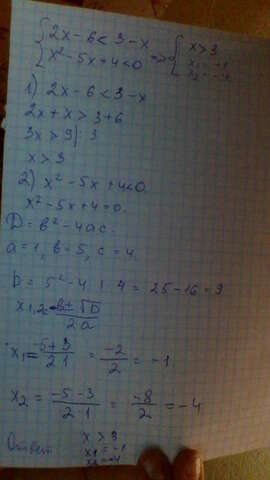 {2x-6<3-x {x²-5x+4<0 => {x>3 {x₁=-1 x₂=-4
1) 2x-6<3-x
2x+x>3+6
3x>9|:3
x>3
2) x²-5x+4<0.
x²-5x+4=0.
D=b²-4ac.
a=1, b=5, c=4.
D=5²-4·1·4=25-16=9
x₁,₂=-b±√D/2a
x₁=-5+3/2·1=-2/2=-1
x₂=-5-3/2·1=-8/2=-4
Ответ x>3
x₁=-1
x₂=-4